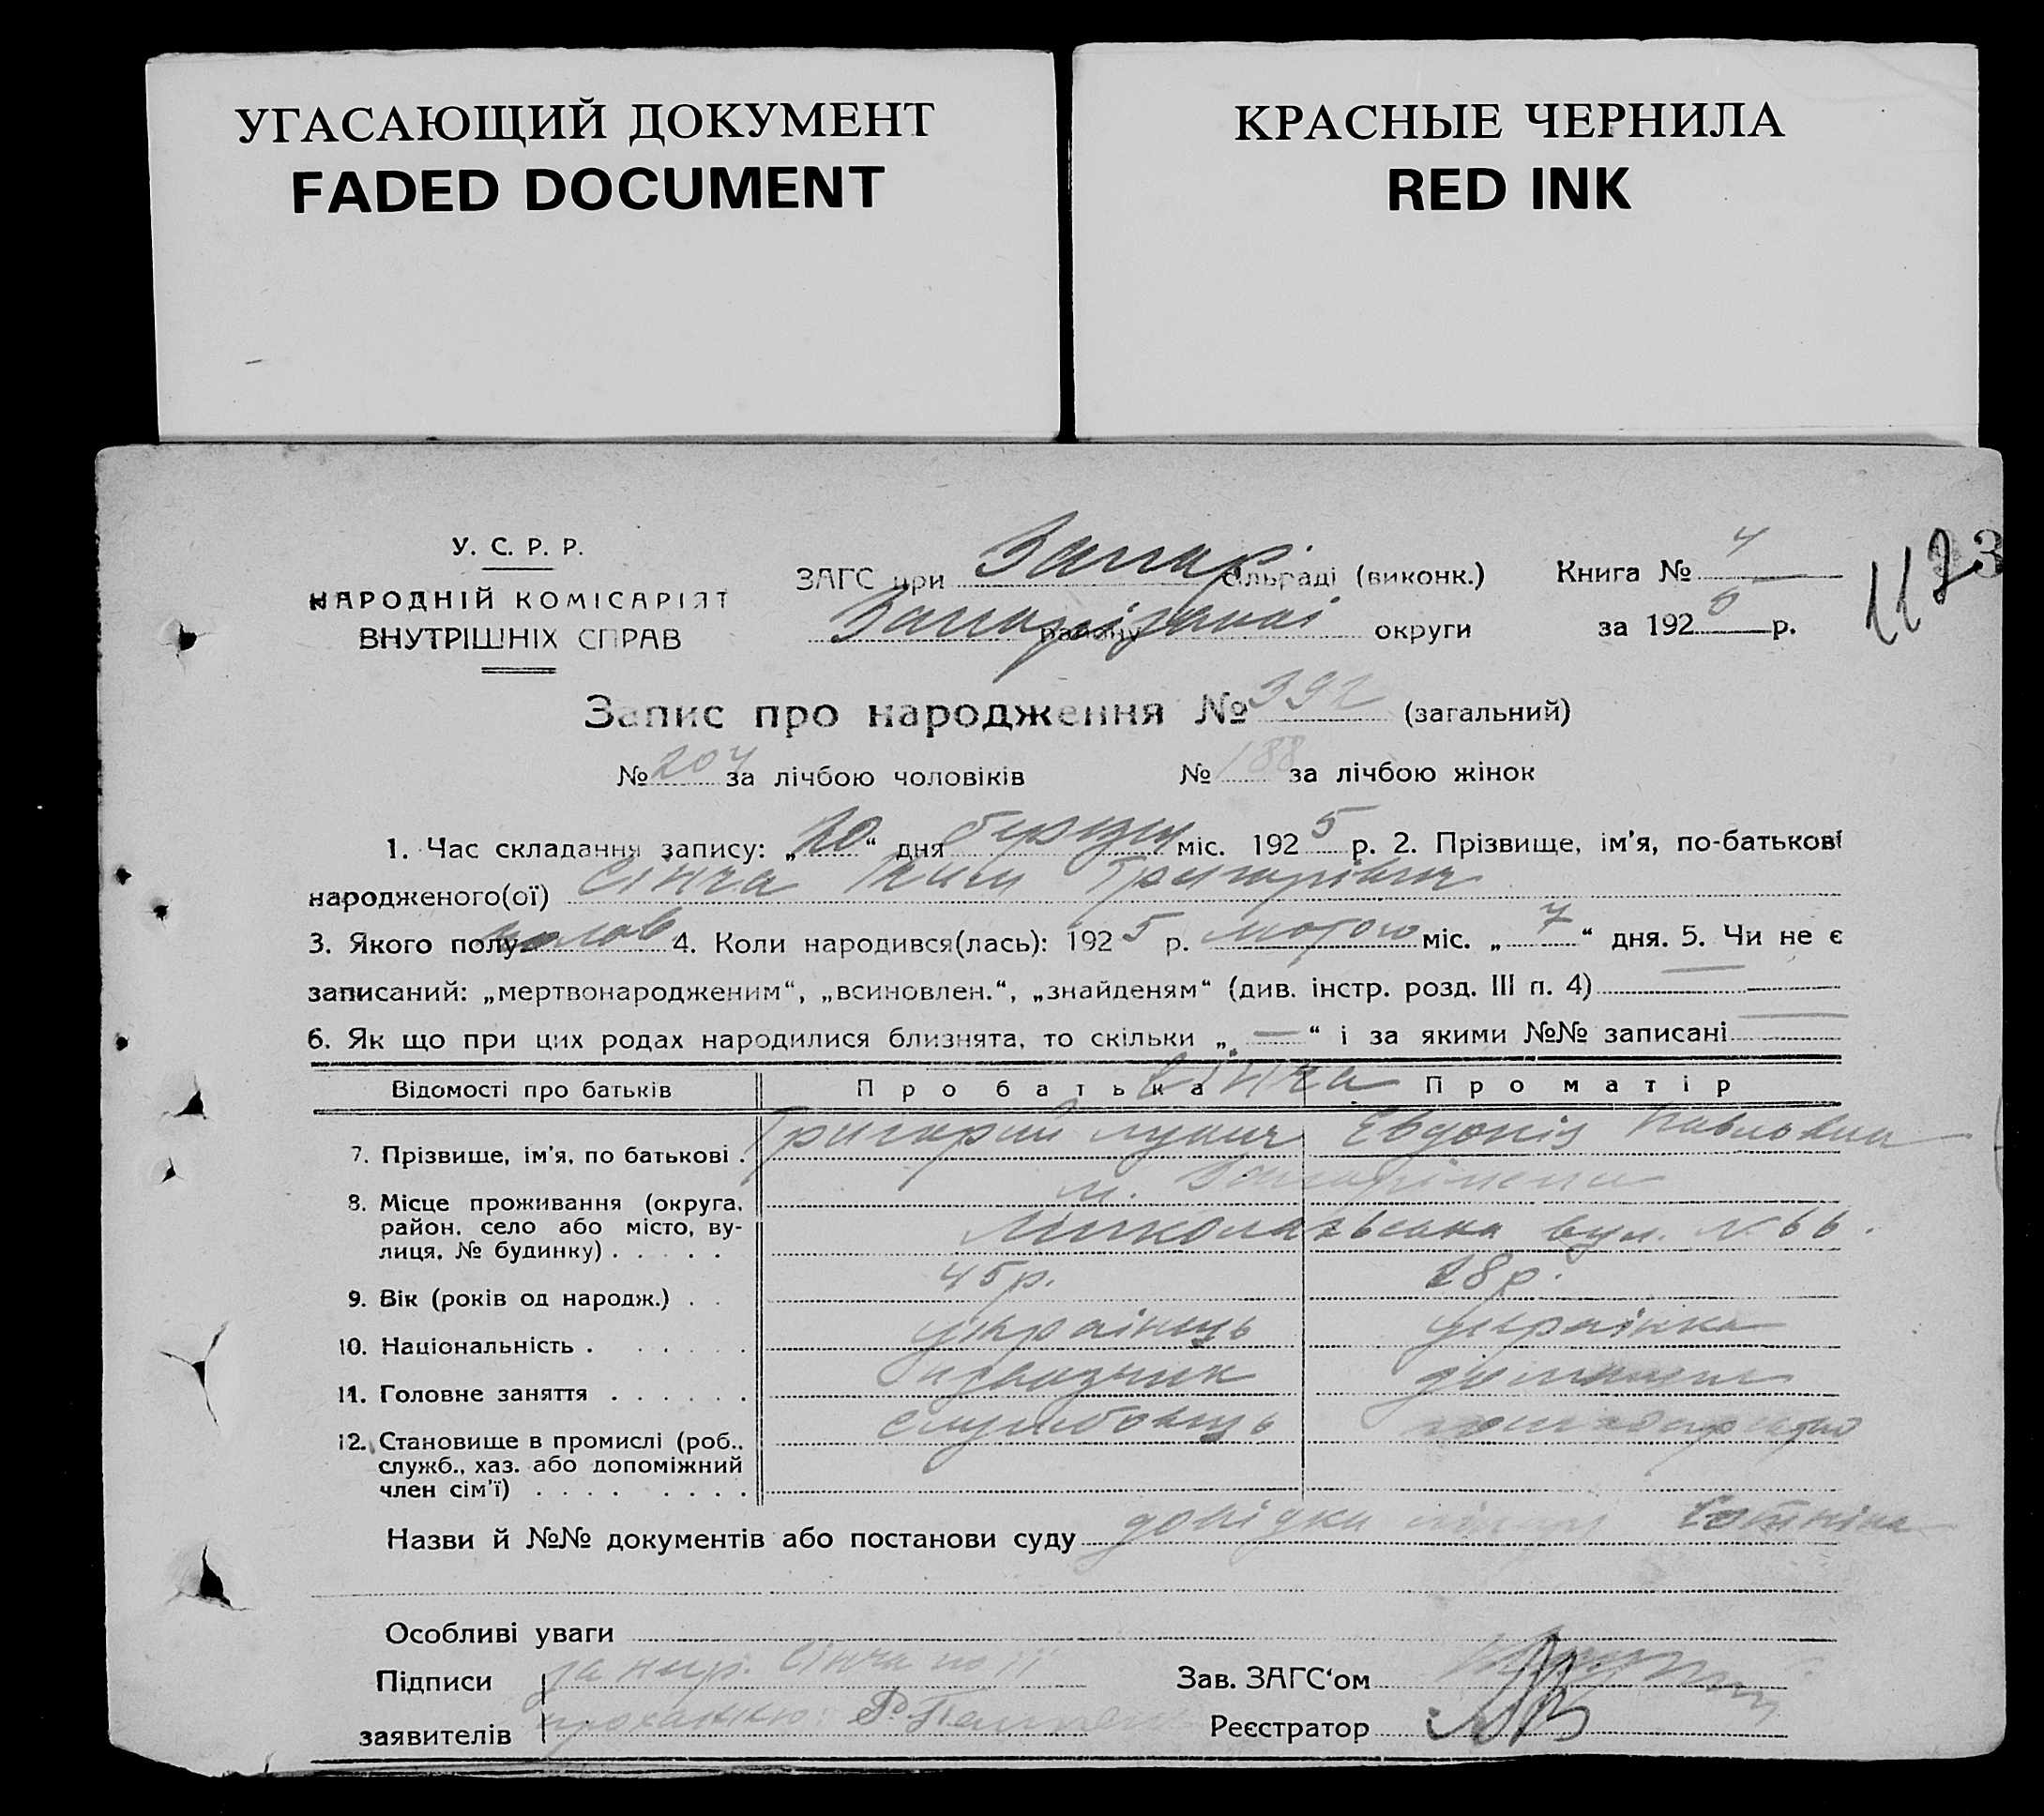 УГАСАЮЩИЙ ДОКУМЕНТ
FADED DOCUMENT
КРАСНЫЕ ЧЕРНИЛА
RED INK
У. С. Р. Р.
НАРОДНІЙ КОМІСАРІЯТ
ВНУТРІШНІХ СПРАВ
ЗАГС при Запор. сільраді (виконк.)
району округи
Книга № 4
за 192 р.
Запис про народження № 392 (загальний)
№ 204 за лічбою чоловіків № 188 за лічбою жінок
1. Час складання запису: „ “ дня березня міс. 1925 р. 2. Прізвище, ім'я, по-батькові
народженого(ої) Сінча Григорівич
3. Якого полу чолов 4. Коли народився(лась): 1925 р. лютого міс. „7“ дня. 5. Чи не є
записаний: „мертвонародженим“, „всиновлен.“, „знайденям“ (див. інстр. розд. III п. 4) —
6. Як що при цих родах народилися близнята, то скільки „—“ і за якими №№ записані —
Відомості про батьків Про батька Сінча Про матір
7. Прізвище, ім'я, по батькові . Григорий Лукич Евдокія Павловна
8. Місце проживання (округа, м.
район, село або місто, ву-
лиця, № будинку) . . . . . Миколаївська вул. № 66.
9. Вік (років од народж.) . . 45 р. 28 р.
10. Національність . . . . . . українець українка
11. Головне заняття . . . . . .
12. Становище в промислі (роб., службовець
служб., хаз. або допоміжний
член сім'ї) . . . . . . . .
Назви й №№ документів або постанови суду довідка
Особливі уваги
Підписи за непр. Сінча по її
заявителів проханню:
Зав. ЗАГС'ом
Реєстратор